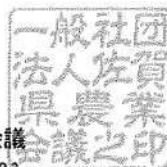 議
一般社団
法人佐賀
県農業
会議之印